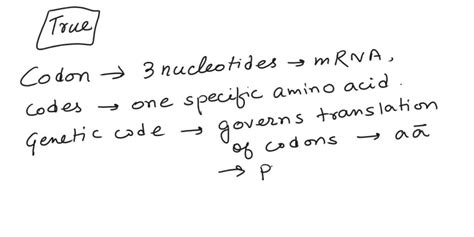 True
Codon → 3 nucleotides → mRNA,
codes → one specific amino acid.
Genetic code → governs translation
of codons → aā
→ p